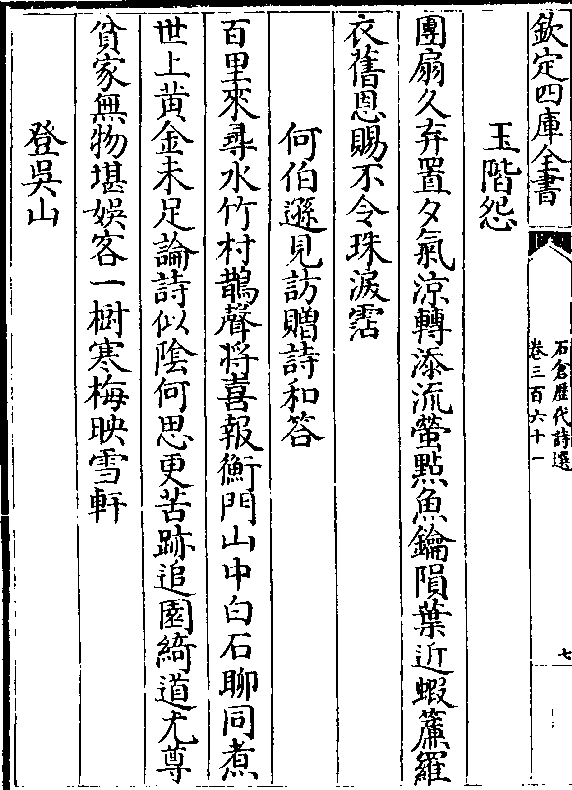 欽定四庫全書
石倉歷代詩選
卷三百六十一
七
玉階怨
團扇久弃置夕氣涼轉添流螢點魚鑰隕葉近蝦簾羅
衣舊恩賜不令珠淚霑
何伯遜見訪贈詩和答
百里來尋水竹村鵲聲将喜報衡門山中白石聊同煮
世上黄金未足論詩似陰何思更苦跡追園綺道尤尊
貧家無物堪娛客一樹寒梅映雪軒
登吳山